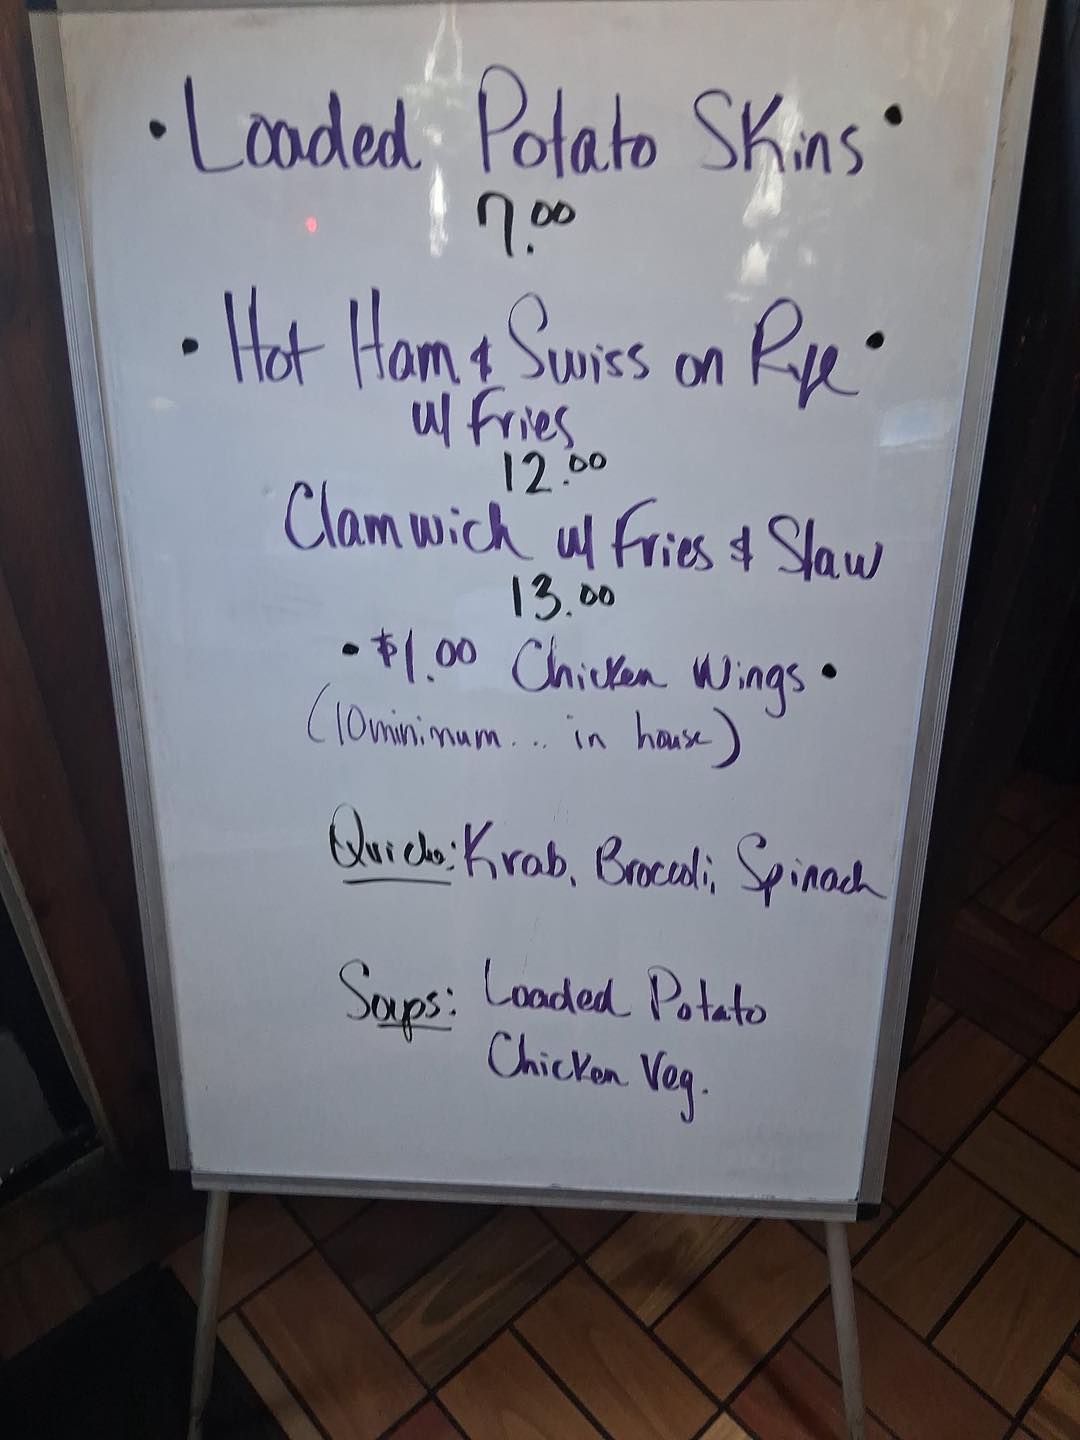 • Loaded Potato Skins •
7.00
• Hot Ham & Swiss on Rye •
w/ Fries
12.00
Clamwich w/ Fries & Slaw
13.00
• $1.00 Chicken Wings •
(10 minimum... in house)
Quiche: Krab, Broccoli, Spinach
Soups: Loaded Potato
Chicken Veg.